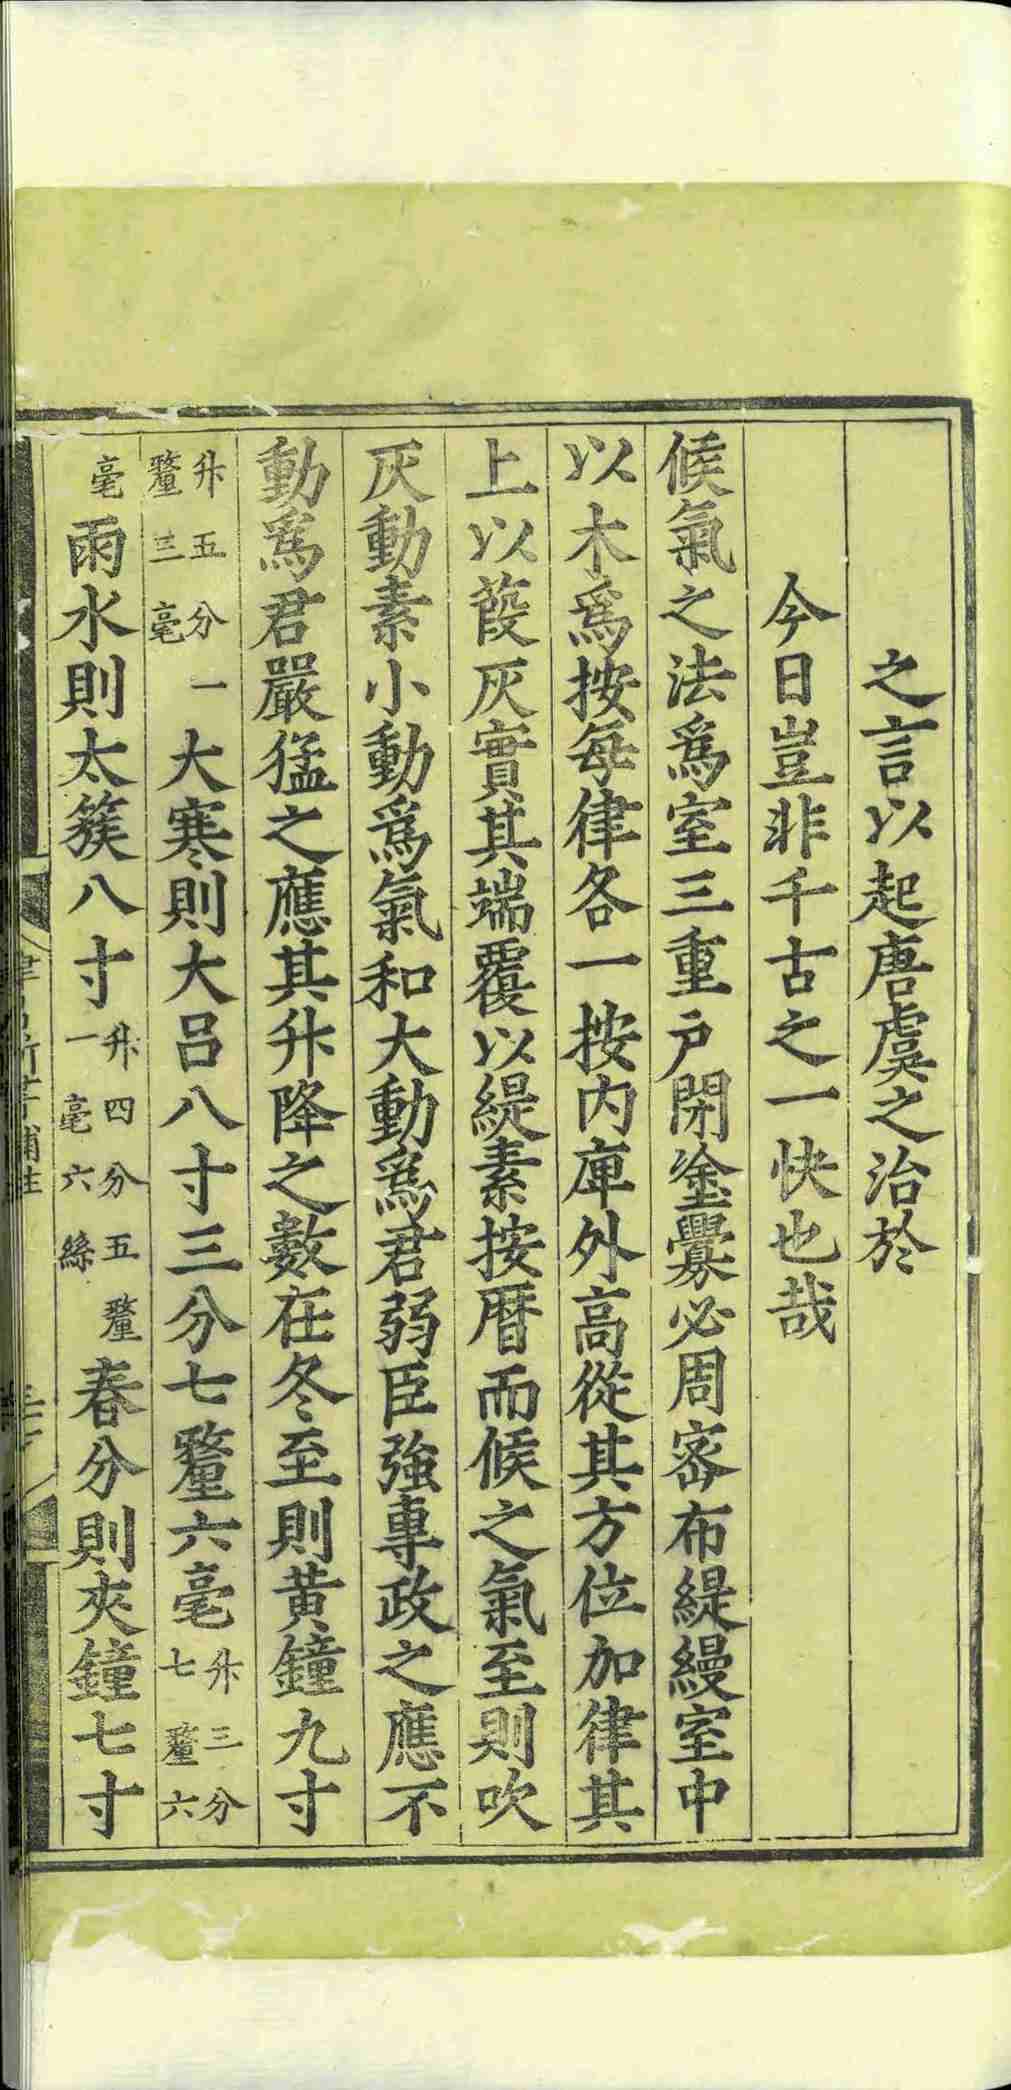 之言以起唐虞之治於
今日豈非千古之一快也哉
候氣之法爲室三重户閉塗釁必周宻布緹縵室中
以木爲按每律各一按内庳外高從其方位加律其
上以葭灰實其端覆以緹素按暦而候之氣至則吹
灰動素小動爲氣和大動爲君弱臣強專政之應不
動爲君嚴猛之應其升降之數在冬至則黄鐘九寸
升五分一釐三毫大寒則大吕八寸三分七釐六毫升三分七釐六
毫雨水則太簇八寸升四分五釐一毫六絲春分則夾鐘七寸